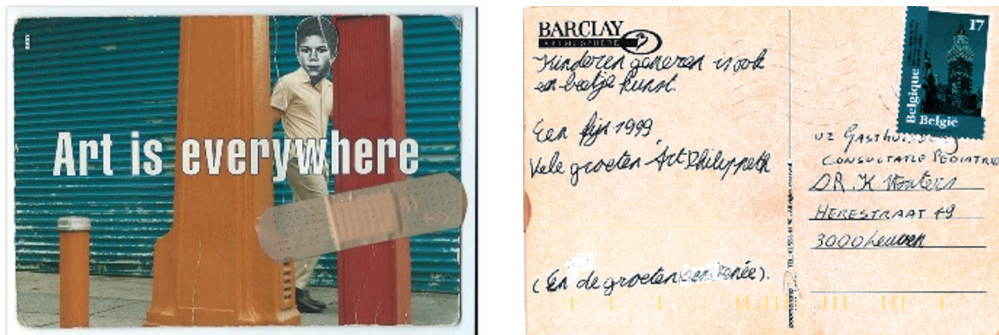 Art is everywhere
BARCLAY
ARTMOSPHERE
Kinderen genezen is ook
een beetje kunst.
Een fijn 1999
Vele groeten
(En de groeten Renée).
17
Belgique
België
UZ Gasthuisberg
CONSULTATIE PEDIATRIE
DR. K. Wouters
HERESTRAAT 49
3000 Leuven